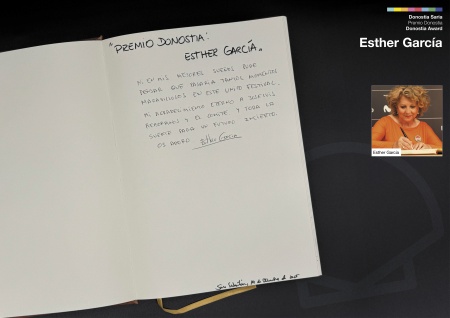 Donostia Saria
Premio Donostia
Donostia Award
Esther García
"PREMIO DONOSTIA:
ESTHER GARCÍA"
NI EN MIS MEJORES SUEÑOS PUDE
PENSAR QUE PASARÍA TANTOS MOMENTOS
MARAVILLOSOS EN ESTE FESTIVAL.
MI AGRADECIMIENTO ETERNO A
Y EL Y TODA LA
SUERTE PARA UN FUTURO INCIERTO.
OS ADORO Esther García
San Sebastián, de de
Esther García